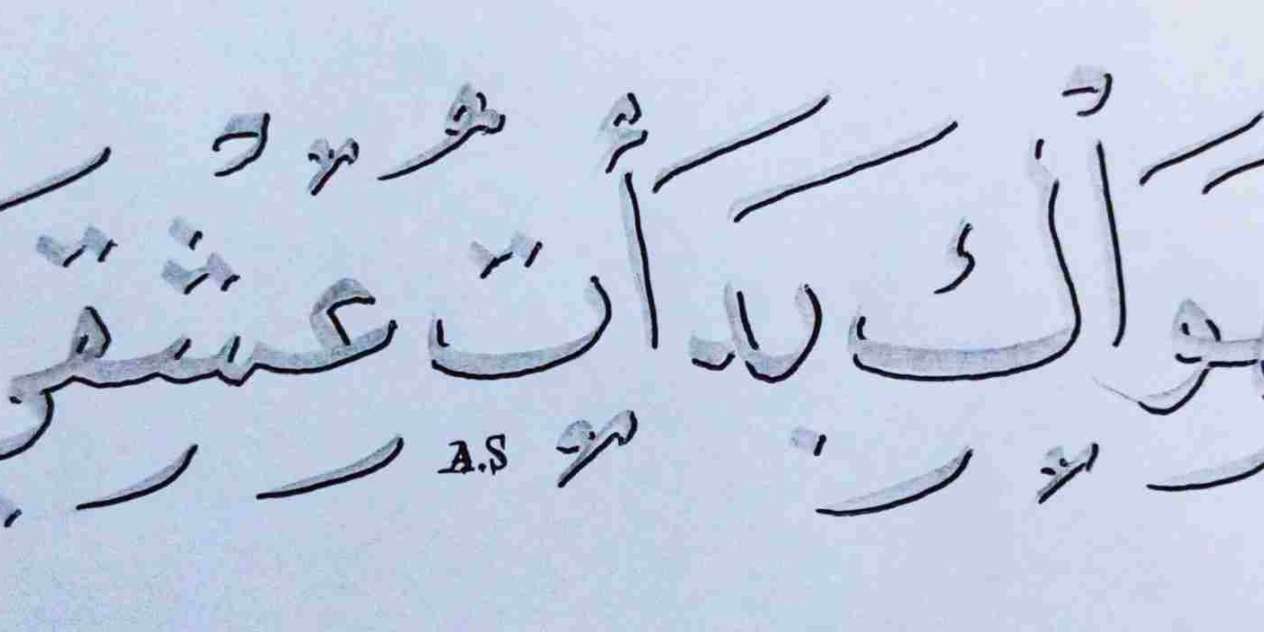 هواك بدأت عشقي
A.S